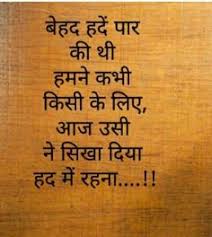 बेहद हदें पार
की थी
हमने कभी
किसी के लिए,
आज उसी
ने सिखा दिया
हद में रहना....!!